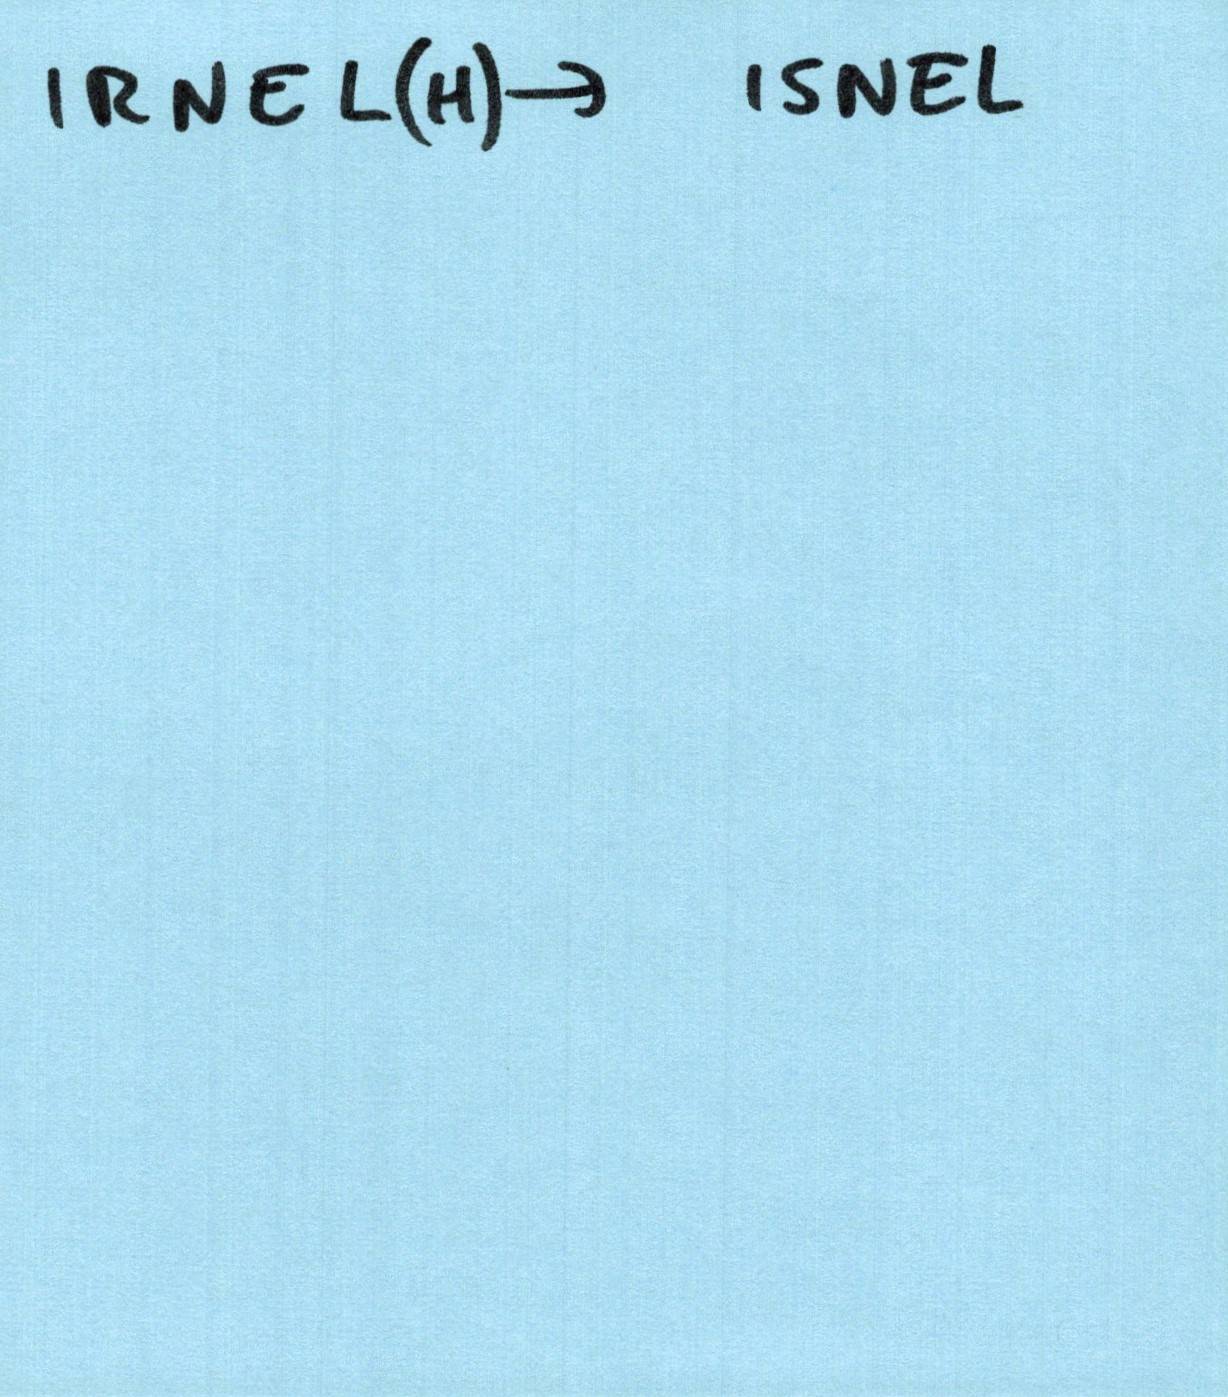 IRNEL(H)→ ISNEL